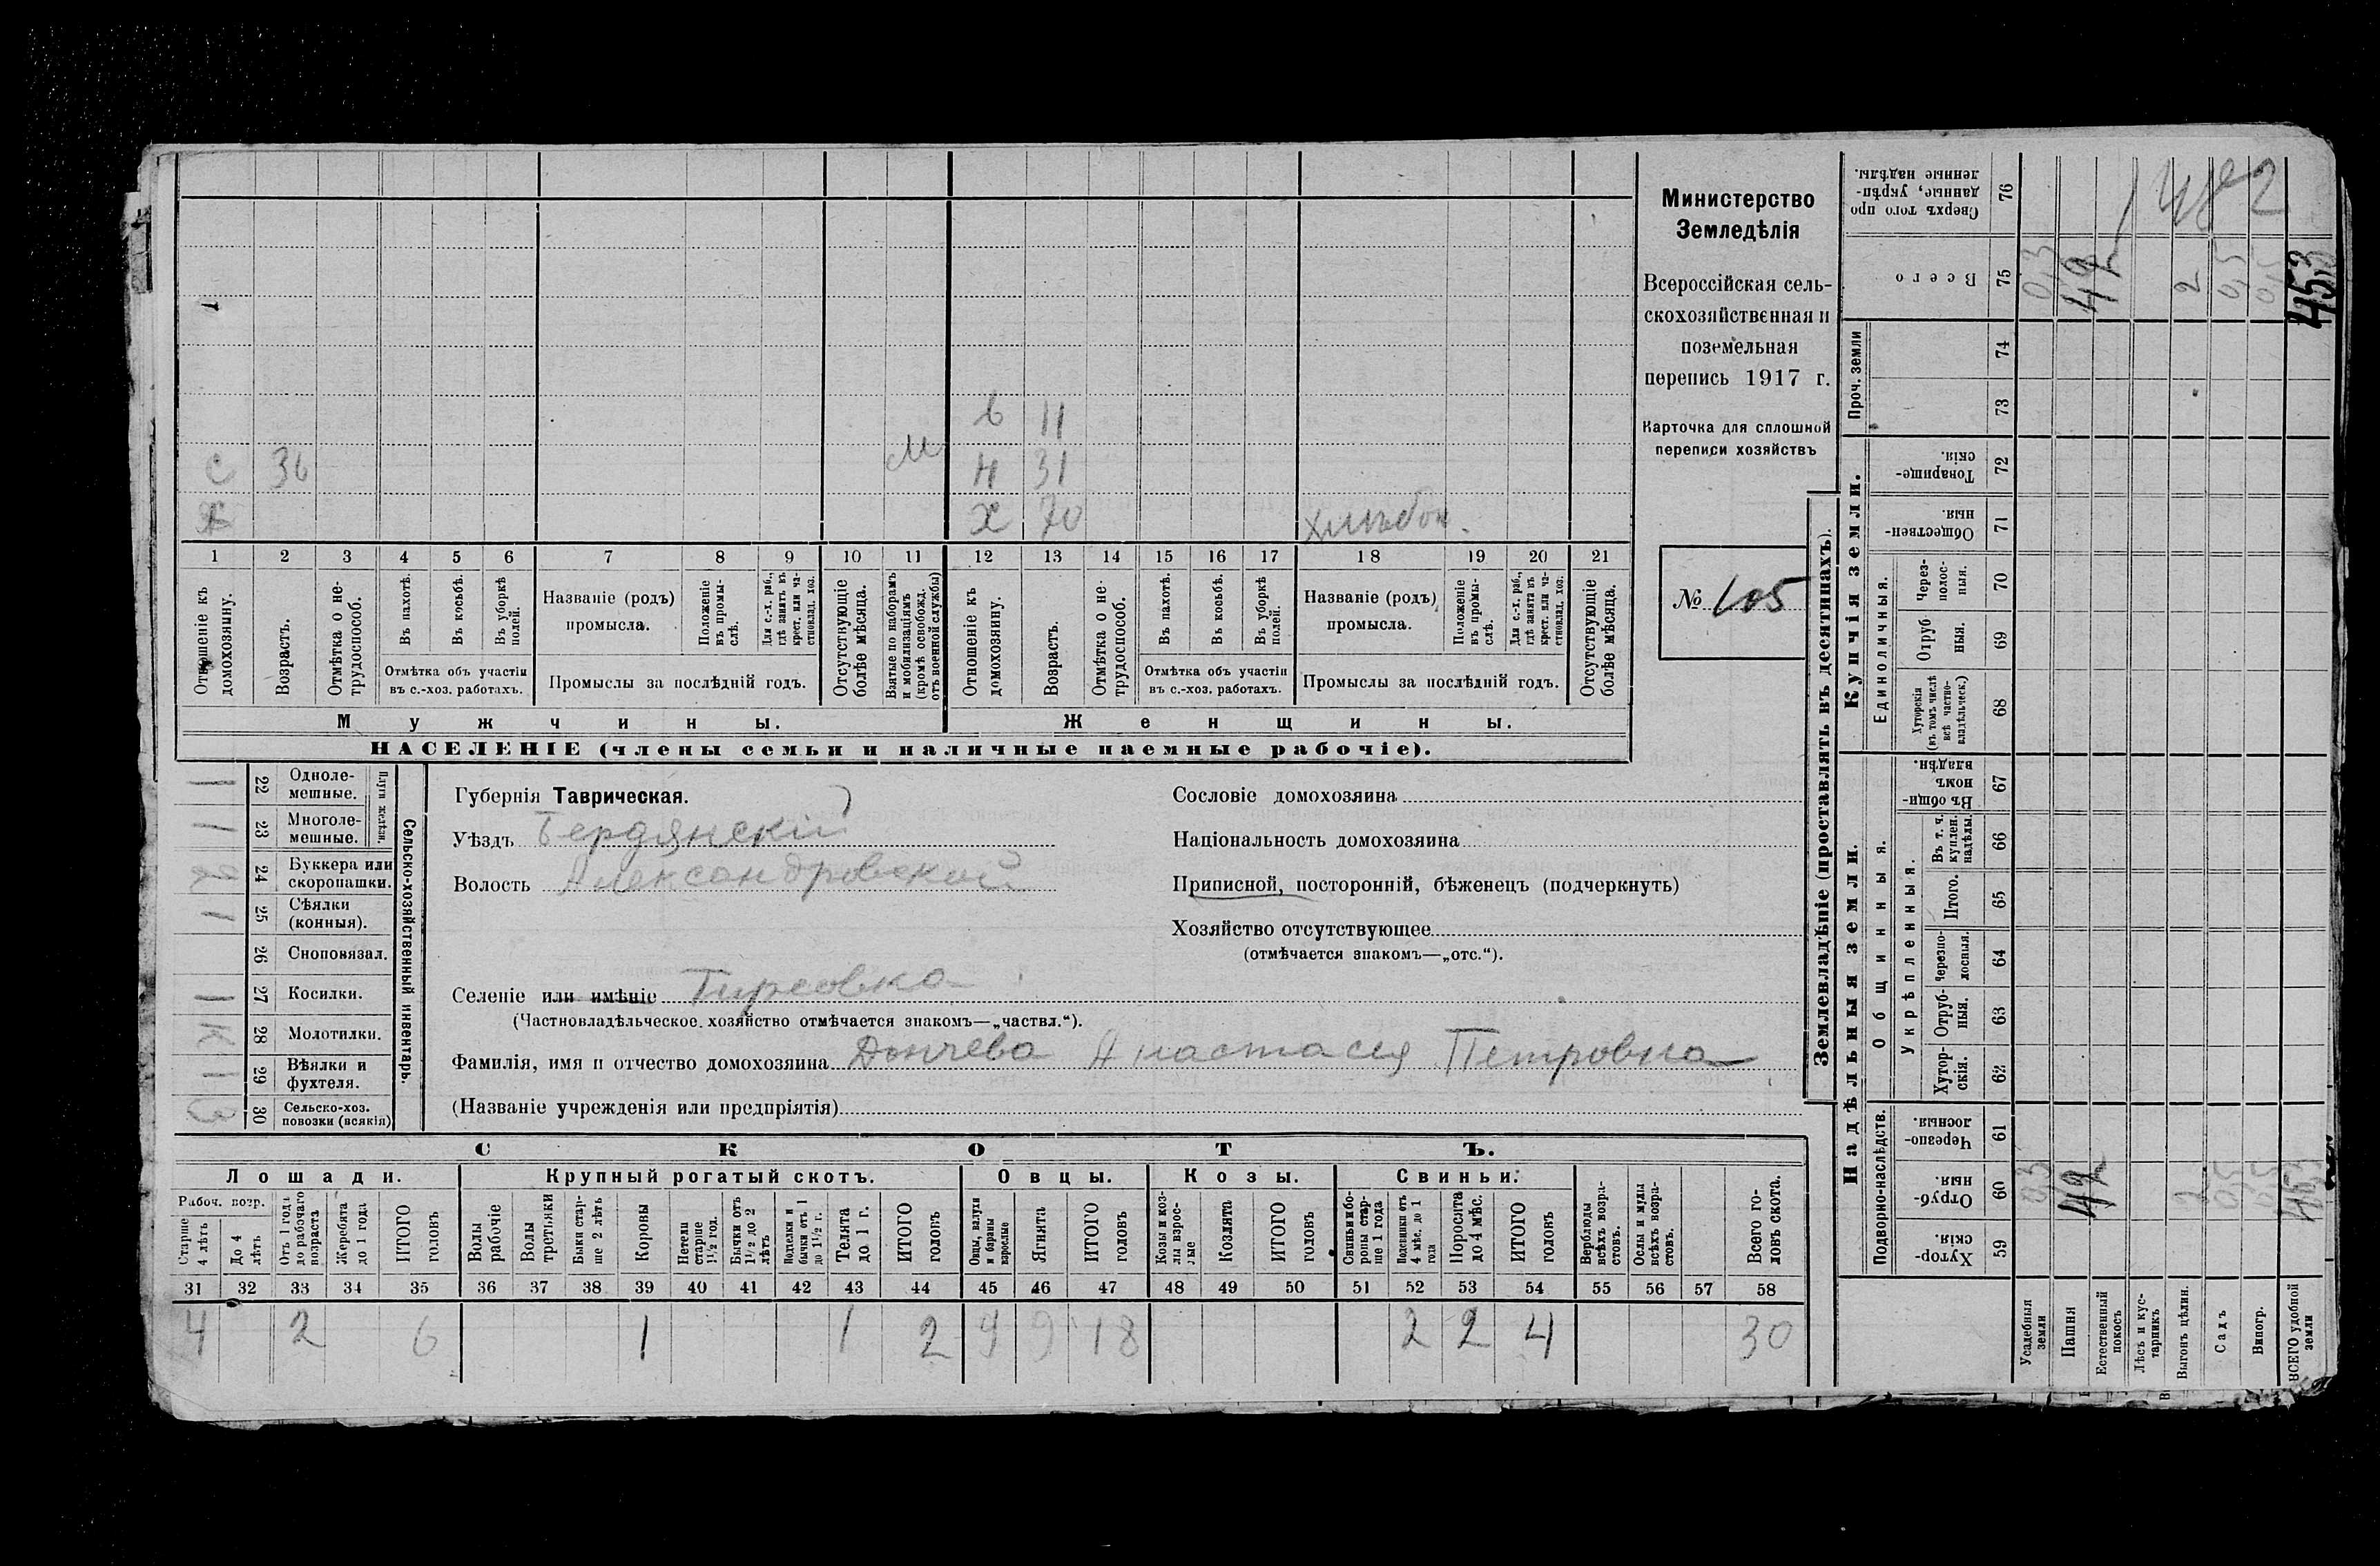 Министерство
Земледѣлія
Всероссійская сель-
скохозяйственная и
поземельная
перепись 1917 г.
Карточка для сплошной
переписи хозяйствъ
№ 105
в 11
с 36 М н 31
х 70
1 2 3 4 5 6 7 8 9 10 11 12 13 14 15 16 17 18 19 20 21
Отношеніе къ домохозяину.
Возрастъ.
Отмѣтка о не-трудоспособ.
Въ пахотѣ.
Въ косьбѣ.
Въ уборкѣ полей.
Отмѣтка объ участіи
въ с.-хоз. работахъ.
Названіе (родъ)
промысла.
Положеніе въ промы-слѣ.
Для с.-х. раб., гдѣ занятъ въ крест. или ча-стновлад. хоз.
Промыслы за послѣдній годъ.
Отсутствующіе болѣе мѣсяца.
Взятые по наборамъ и мобилизаціямъ (кромѣ освобожд. отъ военной службы)
Отношеніе къ домохозяину.
Возрастъ.
Отмѣтка о не-трудоспособ.
Въ пахотѣ.
Въ косьбѣ.
Въ уборкѣ полей.
Отмѣтка объ участіи
въ с.-хоз. работахъ.
Названіе (родъ)
промысла.
Положеніе въ промы-слѣ.
Для с.-х. раб., гдѣ занята въ крест. или ча-стновлад. хоз.
Промыслы за послѣдній годъ.
Отсутствующіе болѣе мѣсяца.
Мужчины. Женщины.
НАСЕЛЕНІЕ (члены семьи и наличные наемные рабочіе).
Сельско-хозяйственный инвентарь.
Плуги желѣзн.
1 22 Одноле-мешные.
1 23 Многоле-мешные.
24 Буккера или скоропашки.
1 25 Сѣялки (конныя).
26 Сноповязал.
1 27 Косилки.
К 28 Молотилки.
1 29 Вѣялки и фухтеля.
3 30 Сельско-хоз. повозки (всякія)
Губернія Таврическая.
Уѣздъ Бердянскій
Волость Александровской
Селеніе или имѣніе Гирсовка
(Частновладѣльческое хозяйство отмѣчается знакомъ—„частвл.“).
Фамилія, имя и отчество домохозяина Дончева Анастасія Петровна
(Названіе учрежденія или предпріятія)
Сословіе домохозяина
Національность домохозяина
Приписной, посторонній, бѣженецъ (подчеркнуть)
Хозяйство отсутствующее
(отмѣчается знакомъ—„отс.“).
СКОТЪ.
Лошади. Крупный рогатый скотъ. Овцы. Козы. Свиньи.
Рабоч. возр.
Старше 4 лѣтъ
До 4 лѣтъ
Отъ 1 года до рабочаго возраста
Жеребята до 1 года
ИТОГО головъ
Волы рабочіе
Волы третьяки
Быки стар-ше 2 лѣтъ
Коровы
Нетели старше 1½ год.
Бычки отъ 1½ до 2 лѣтъ
Подтелки и бычки отъ 1 до 1½ г.
Телята до 1 г.
ИТОГО головъ
Овцы, валухи и бараны взрослые
Ягнята
ИТОГО головъ
Козы и коз-лы взрос-лые
Козлята
ИТОГО головъ
Свиньи и бо-ровы стар-ше 1 года
Подсвинки отъ 4 мѣс. до 1 года
Поросята до 4 мѣс.
ИТОГО головъ
Верблюды всѣхъ возра-стовъ.
Ослы и мулы всѣхъ возра-стовъ.
Всего го-ловъ скота.
31 32 33 34 35 36 37 38 39 40 41 42 43 44 45 46 47 48 49 50 51 52 53 54 55 56 57 58
4 2 6 1 1 2 9 9 18 2 2 4 30
Землевладѣніе (проставлять въ десятинахъ).
Купчія земли.
Надѣльныя земли.
Сверхъ того про данные, укрѣп-ленные надѣлы. 76
Всего 75
Проч. земли
74
73
Товарище-скія. 72
Обществен-ныя. 71
Единоличныя.
Через-полос-ныя. 70
Отруб ныя. 69
Хуторскія (въ томъ числѣ всѣ частно-владѣльческ.) 68
Общинныя.
Въ общи-номъ владѣн. 67
Укрѣпленныя.
Въ т. ч. куплен. надѣлы. 66
Итого. 65
Черезпо-лосныя. 64
Отруб-ныя. 63
Хутор-скія. 62
Подворно-наслѣдств.
Черезпо-лосныя. 61
Отруб-ныя. 60
Хутор-скія. 59
Усадебныя земли 03 03
Пашня 42 42
Естественный покосъ
Лѣсъ и кус-тарникъ
Выгонъ цѣлин. 2 2
Садъ 05 05
Виногр. 05 05
ВСЕГО удобной земли 453 453